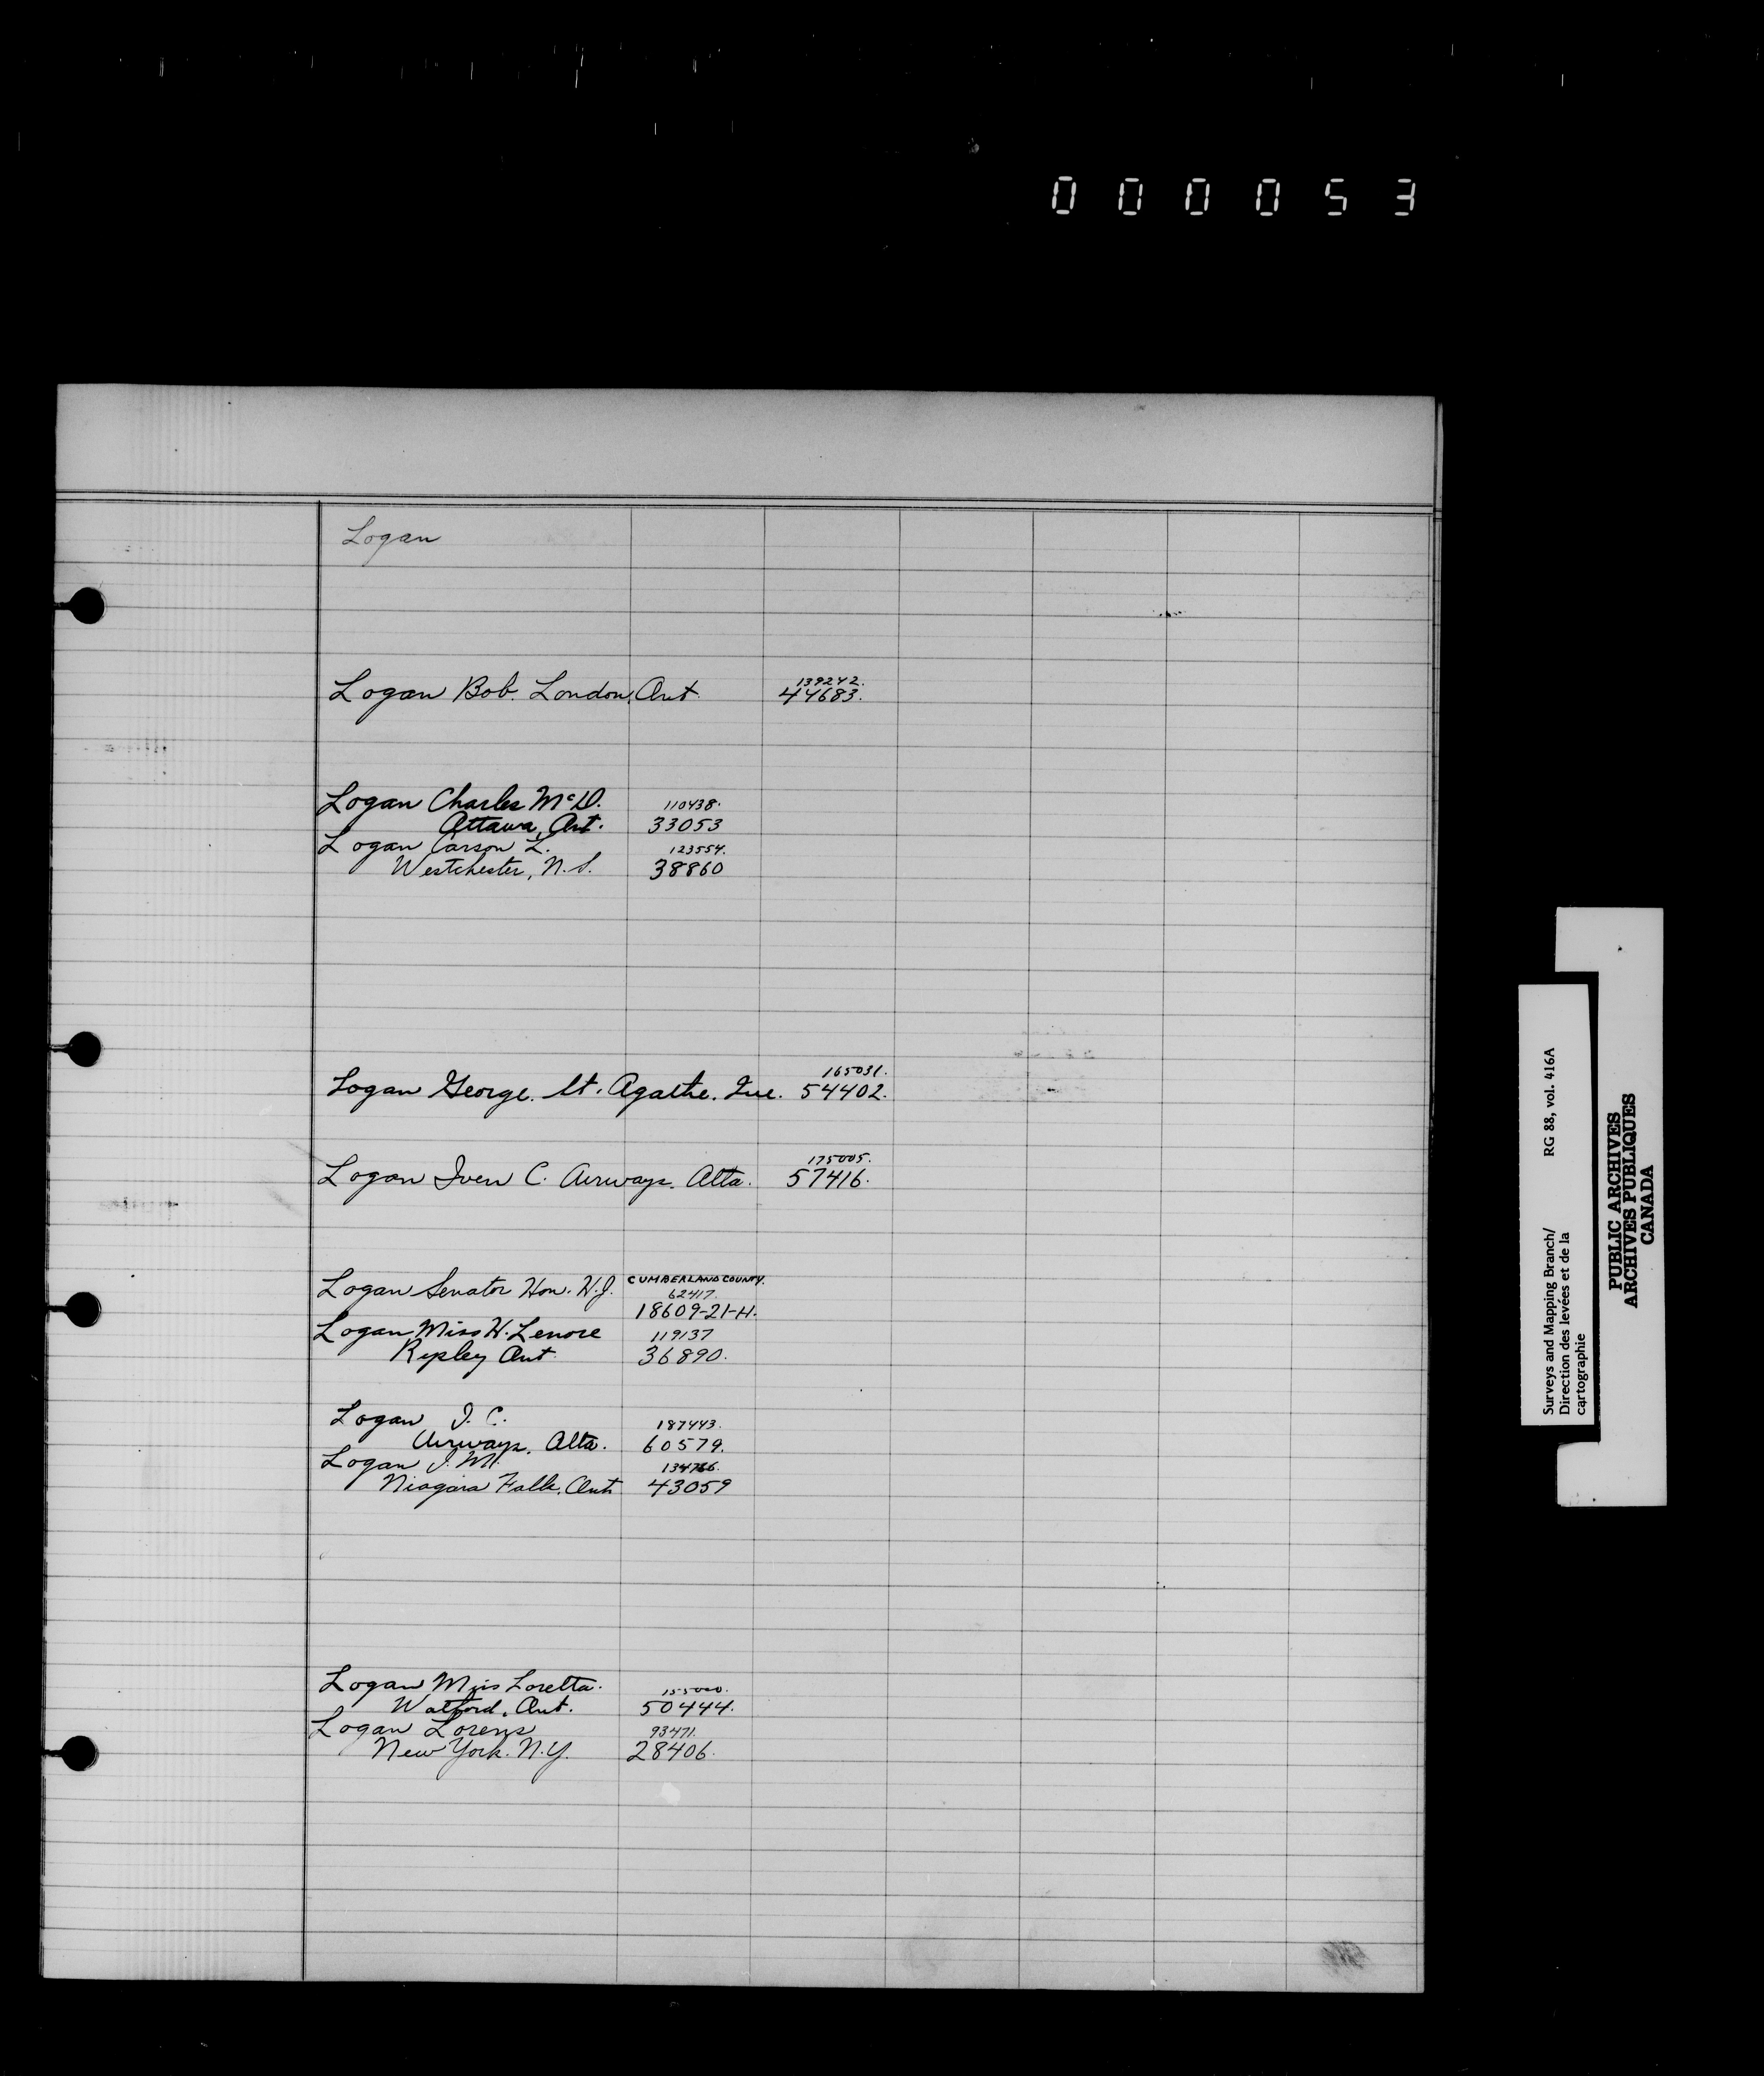 000053
Logan
139242.
Logan Bob. London, Ont. 44683.
Logan Charles McD. 110438.
Ottawa, Ont. 33053
Logan Carson L. 123554.
Westchester, N.S. 38860
165031.
Logan George. St. Agathe. Que. 54402.
175005.
Logan Iven C. Airways. Alta. 57416.
Logan Senator Hon. H.J. CUMBERLAND COUNTY.
62417.
18609-21-H.
Logan Miss H. Lenore 119137
Ripley Ont. 36890.
Logan I. C. 187443.
Airways. Alta. 60579.
Logan J. M. 134766.
Niagara Falls, Ont. 43059
Logan Miss Loretta. 155000.
Watford, Ont. 50444.
Logan Lorens 93471.
New York. N.Y. 28406.
Surveys and Mapping Branch/ RG 88, vol. 416A
Direction des levées et de la
cartographie
PUBLIC ARCHIVES
ARCHIVES PUBLIQUES
CANADA